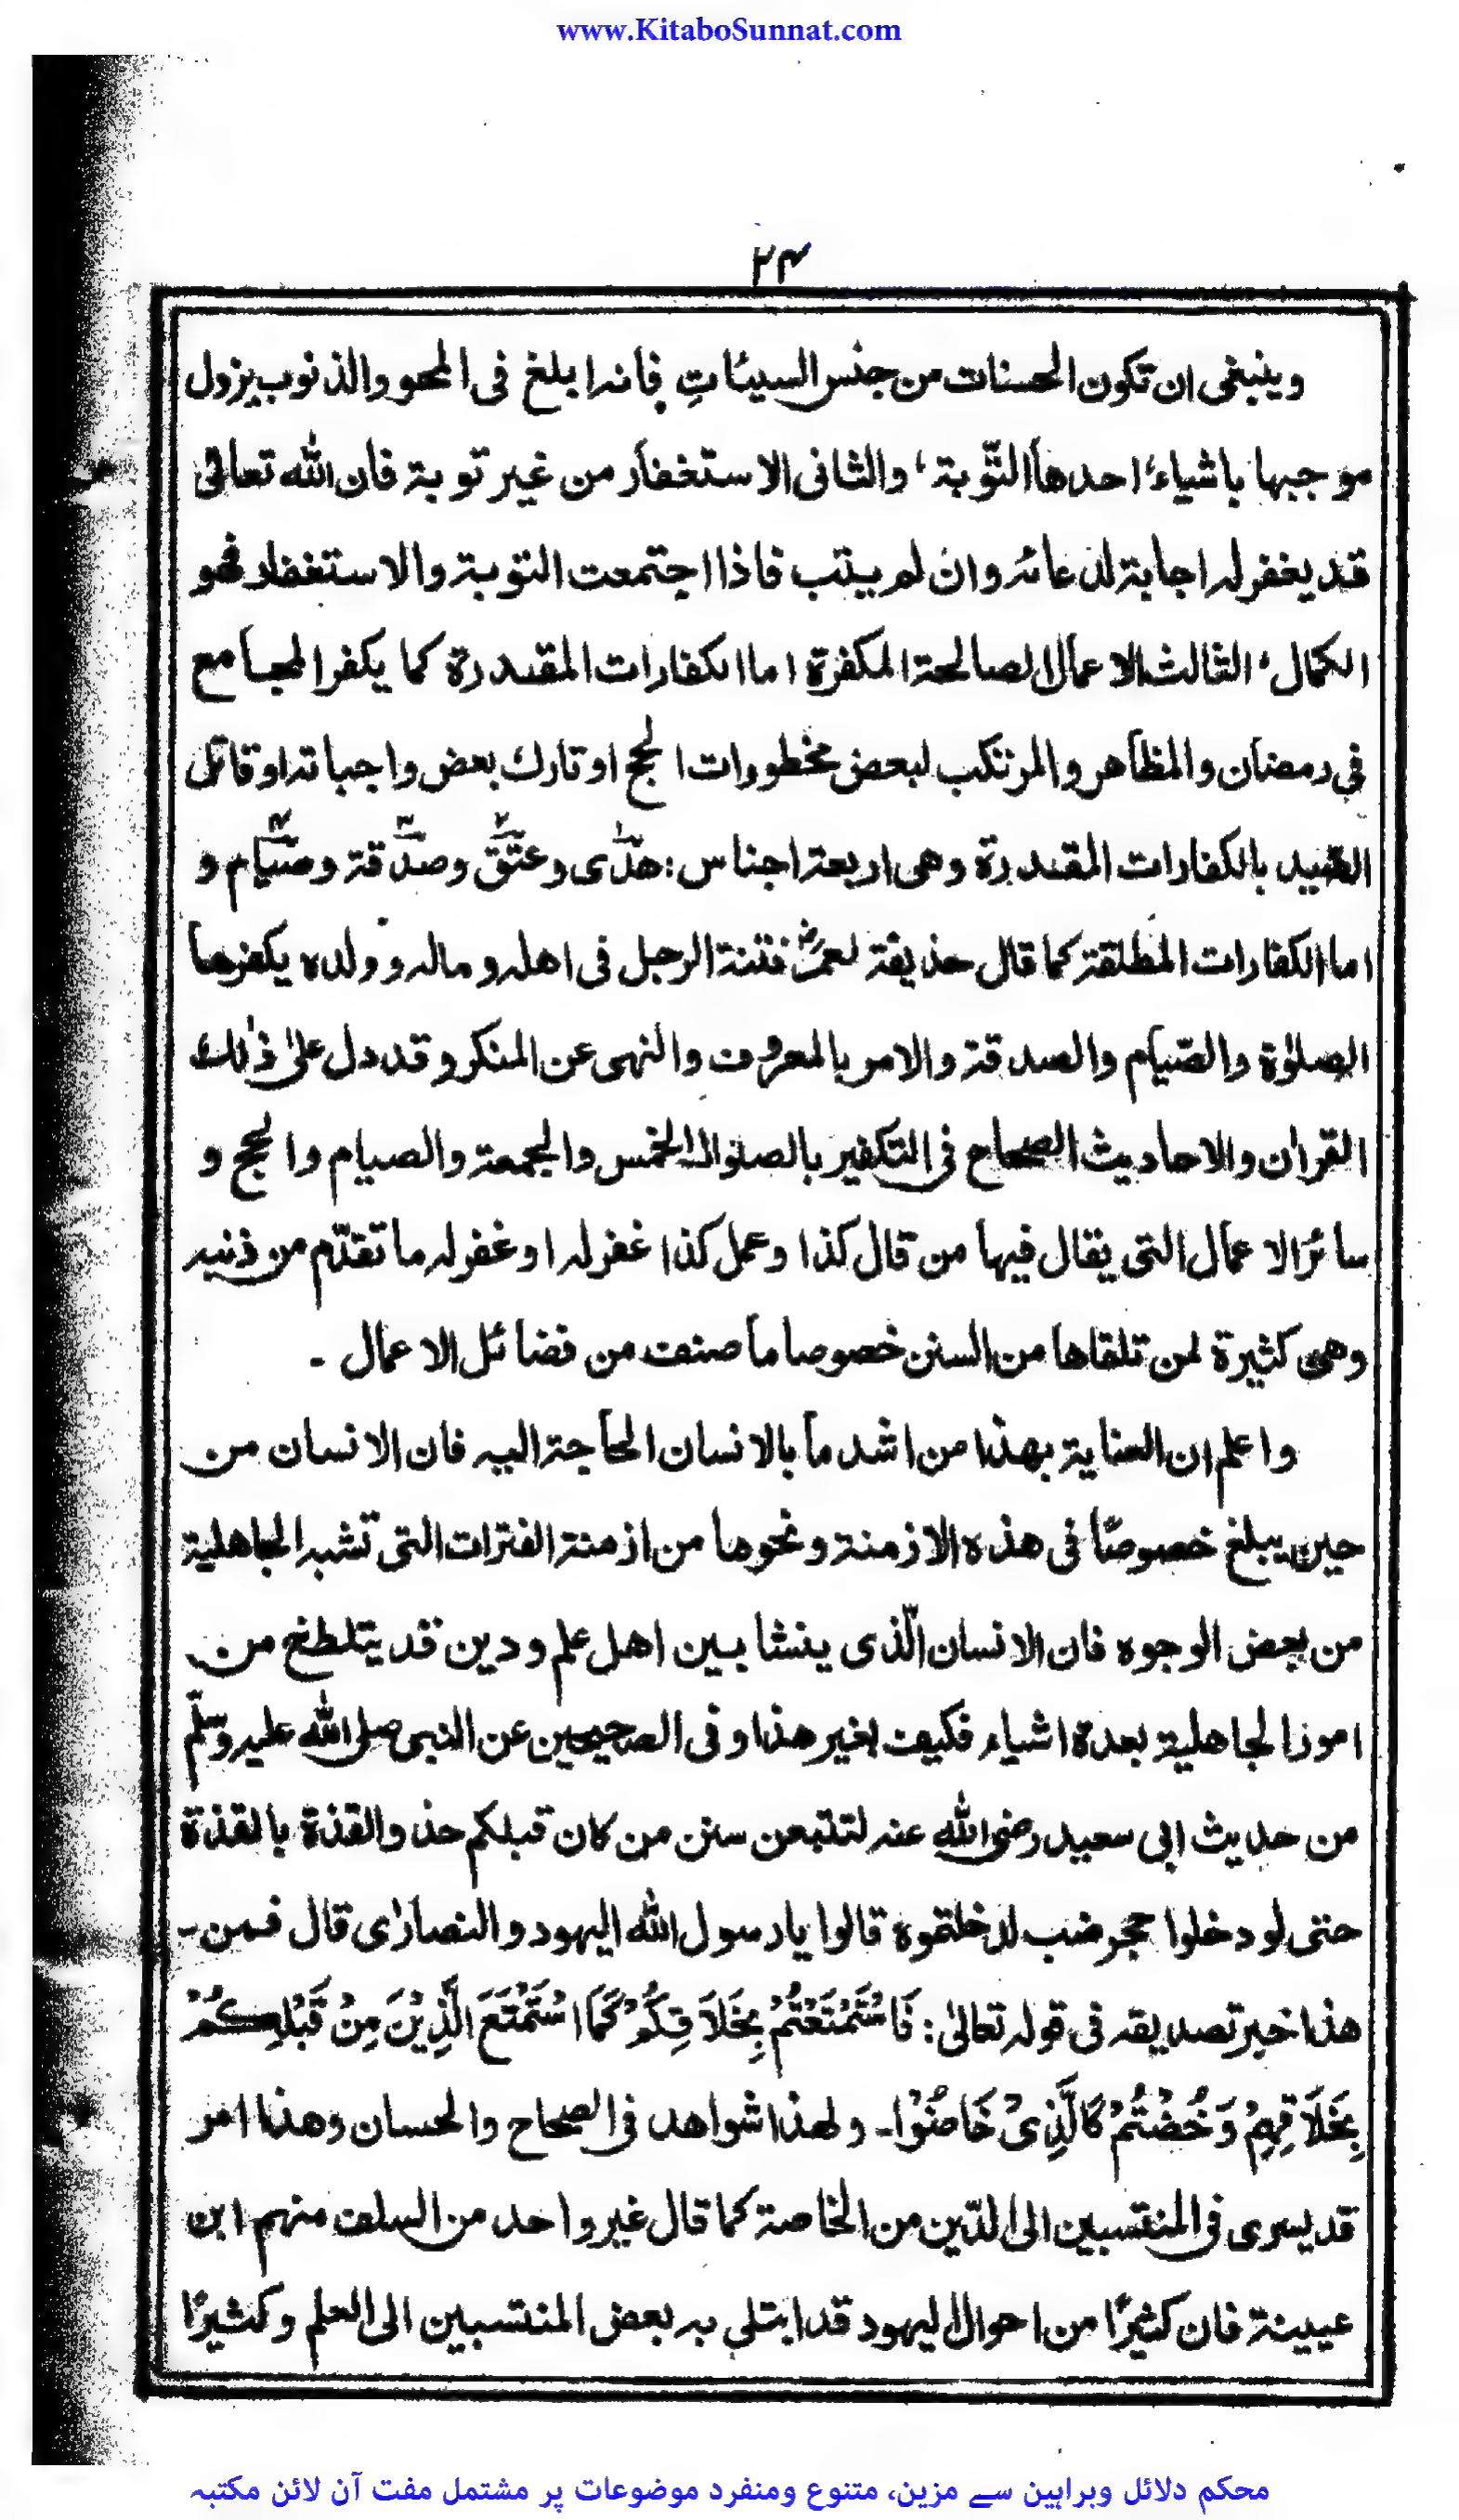 www.KitaboSunnat.com
۲۴
وینبغی ان تکون الحسنات من جنس السیئاتِ فانہ ابلغ فی المحو والذنوب یزول
موجبہا باشیاء احدھا التّوبۃ، والثانی الاستغفار من غیر توبۃ فان اللہ تعالیٰ
قد یغفر لہ اجابۃ لدعائہ وان لم یتب فاذا اجتمعت التوبۃ والاستغفار فھو
الکمال، الثالث الاعمال الصالحۃ المکفرۃ اما الکفارات المقدرۃ کما یکفر المجامع
فی رمضان والمظاھر والمرتکب لبعض مخطورات الحج او تارک بعض واجباتہ او قاتل
الصّید بالکفارات المقدرۃ وھی اربعۃ اجناس: ھدی وعتق وصدقۃ وصیام و
اما الکفارات المطلقۃ کما قال حذیفۃ لعمرؓ فتنۃ الرجل فی اھلہ ومالہ وولدہ یکفرھا
الصلوٰۃ والصّیام والصدقۃ والامر بالمعروف والنہی عن المنکر وقد دل علیٰ ذٰلک
القراٰن والاحادیث الصحاح فی التکفیر بالصلوات الخمس والجمعۃ والصیام والحج و
سائر الاعمال التی یقال فیہا من قال کذا وعمل کذا غفر لہ او غفر لہ ما تقدّم من ذنبہ
وھی کثیرۃ لمن تلقاھا من السنن خصوصا ما صنف من فضائل الاعمال ۔
واعلم ان العنایۃ بھذا من اشد ما بالانسان الحاجۃ الیہ فان الانسان من
حین یبلغ خصوصًا فی ھذہ الازمنۃ ونحوھا من ازمنۃ الفترات التی تشبہ الجاھلیۃ
من بعض الوجوہ فان الانسان الّذی ینشا بین اھل علم ودین قد یتلطخ من
امور الجاھلیۃ بعدۃ اشیاء فکیف بغیر ھذا وفی الصحیحین عن النبی صلی اللہ علیہ وسلّم
من حدیث ابی سعید رضی اللہ عنہ لتتبعن سنن من کان قبلکم حذو القذۃ بالقذۃ
حتی لو دخلوا حجر ضب لدخلتموہ قالوا یا رسول اللہ الیہود والنصارٰی قال فمن۔
ھذا خبر تصدیقہ فی قولہ تعالیٰ: فَاسْتَمْتَعْتُمْ بِخَلَاقِکُمْ کَمَا اسْتَمْتَعَ الَّذِیْنَ مِنْ قَبْلِکُمْ
بِخَلَاقِھِمْ وَخُضْتُمْ کَالَّذِیْ خَاضُوْا۔ ولھذا شواھد فی الصحاح والحسان وھذا امر
قد یسری فی المنتسبین الی الدّین من الخاصۃ کما قال غیر واحد من السلف منہم ابن
عیینۃ فان کثیرًا من احوال الیہود قد ابتلی بہ بعض المنتسبین الی العلم وکثیرًا
محکم دلائل وبراہین سے مزین، متنوع ومنفرد موضوعات پر مشتمل مفت آن لائن مکتبہ